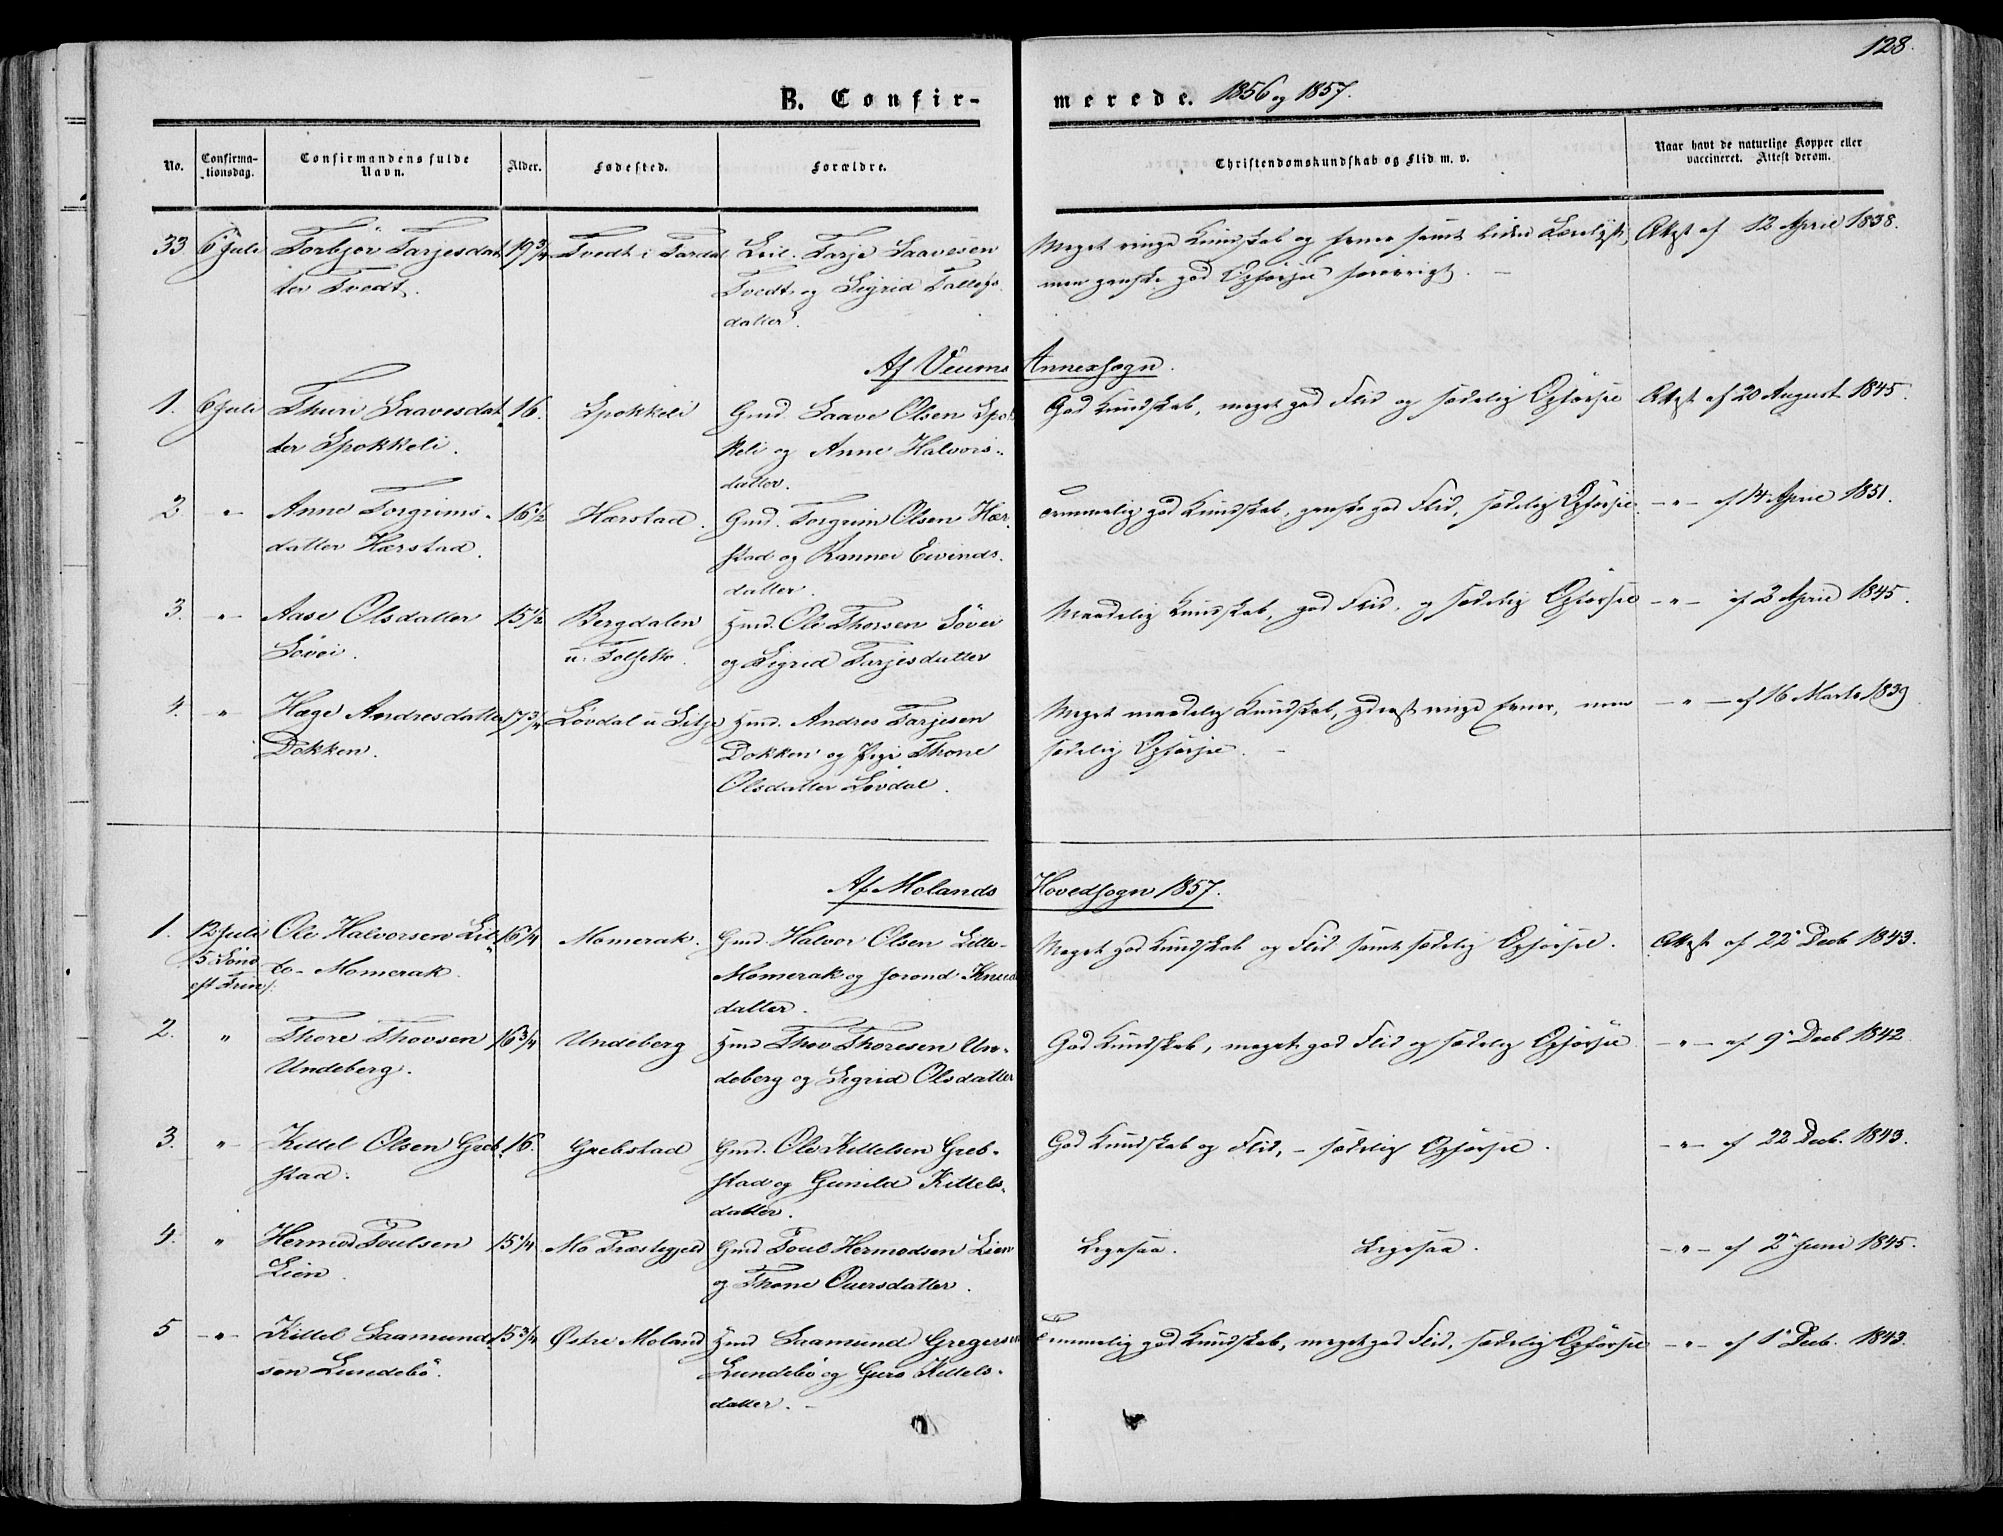 128.
B. Confirmerede. 1856 og 1857.
No.
Confirmationsdag.
Confirmandens fulde Navn.
Alder.
Fødested.
Forældre.
Christendomskundskab og Flid m. v.
Naar havt de naturlige Kopper eller vaccineret. Attest derom.
33 6 Juli Torbjør Tarjesdat 19 3/4 Tvedt i Tørdal Leil. Tarje Saavesen Meget ringe Kundskab og Evner samt liden Lærelyst, Attest af 12 April 1838.
ter Tvedt. Tvedt og Sigrid Tallefs men ganske god Opførsel forøvrigt. —
datter.
Af Veums Annexsogn.
1. 6 Juli Thuri Saavesdat 16. Spokkeli Gmd. Saave Olsen Spok God Kundskab, meget god Flid og sædelig Opførsel Attest af 20 August 1845.
ter Spokkeli. keli og Anne Halvors-
datter.
2 — " — Anne Torgrims- 16 1/2 Hærstad. Gmd. Torgrim Olsen Hær- Temmelig god Kundskab, ganske god Flid, sædelig Opførsel — " — af 14 April 1851.
datter Hærstad. stad og Rannei Eivinds-
datter.
3. — " — Aase Olsdatter 15 1/2 Bergdalen Hmd. Ole Thorsen Løvei Maadelig Kundskab, god Flid, og sædelig Opførsel — " — af 3 April 1845.
Løvei. u. og Sigrid Tarjesdatter
4. " Hæge Andresdatter 17 3/4 Løvdal u. Hmd. Andres Tarjesen Meget maadelig Kundskab, yderst ringe Evner, men — " — af 16 Marts 1839
Dokken. Dokken og Pige Thone sædelig Opførsel. —
Olsdatter Løvdal.
Af Molands Hovedsogn 1857.
1. 12 Juli Ole Halvorsen Lil- 16 1/4 Momerak. Gmd. Halvor Olsen Lille- Meget god Kundskab og Flid samt sædelig Opførsel. Attest af 22 Decb 1843.
5 Sönd le-Momerak. Momerak og Jorond Knuds
eft Trin. datter.
2. " Thore Thovsen 16 3/4 Undeberg Hmd Thov Thoresen Un- God Kundskab, meget god Flid og sædelig Opførsel — " — af 9 Decb 1842
Undeberg. deberg og Sigrid Olsdatter
3. " Kittel Olsen Greb- 16. Grebstad Gmd. Ole Kittelsen Greb- God Kundskab og Flid, – sædelig Opførsel. — " — af 22 Decb. 1843.
stad. stad og Gunild Kittels-
datter.
4. " Hermod Toulsen 15 1/4 Mo Præstegjeld Gmd Toul Hermodsen Lien Ligesaa. Ligesaa. — " — af 2 Juni 1845.
Lien. og Thone datter.
5 — " — Kittel Saamunds 15 3/4 Østre Moland Hmd Saamund Gregersen Temmelig god Kundskab, meget god Flid, sædelig Opførsel — " — af 1 Decb. 1843.
sen Lundebö. Lundebö og Guro Kittels-
datter. —